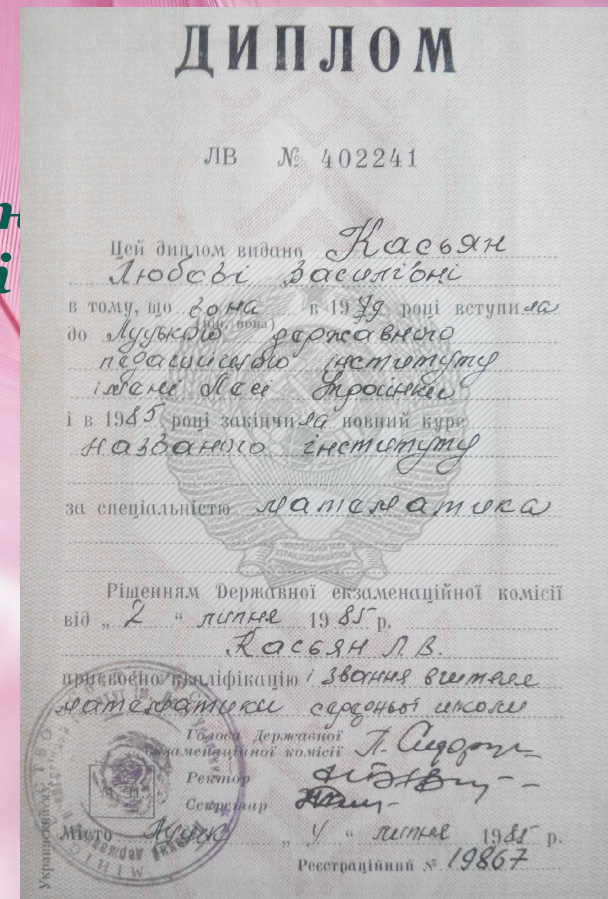 ДИПЛОМ
ЛВ № 402241
Цей диплом видано Касьян
Любові Василівні
в тому, що вона в 1979 році вступила
(він, вона)
до Луцького державного
педагогічного інституту
імені Лесі Українки
і в 1985 році закінчила повний курс
названого інституту
за спеціальністю математика
Рішенням Державної екзаменаційної комісії
від „ 2 “ липня 1985 р.
Касьян Л.В.
присвоєно кваліфікацію і звання вчителя
математики середньої школи
Голова Державної
екзаменаційної комісії
Ректор
Секретар
М. П.
Місто Луцьк „ 4 “ липня 1985 р.
Реєстраційний № 19867